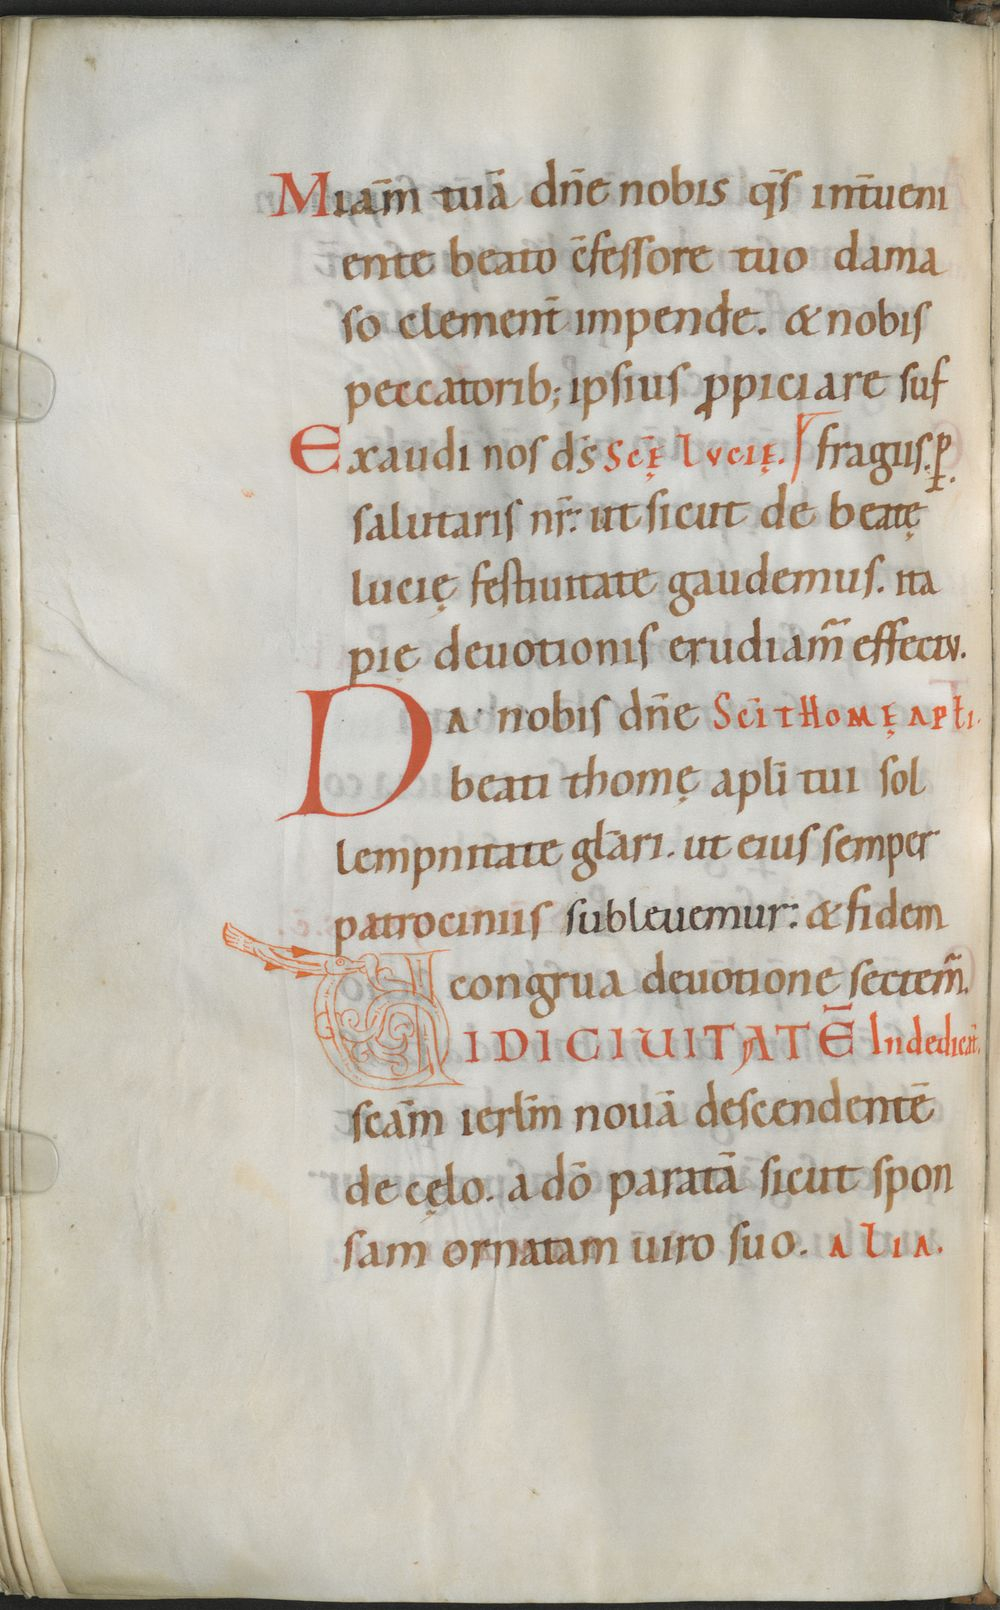 Miam̄ tuā dn̄e nobis q̄s int̄ueni
ente beato c̄fessore tuo dama
so clement̄ impende. & nobis
peccatorib; ipsius ꝓpiciare suf
Exaudi nos d̄s Sc̄ę Lucię. fragiis. ꝑ
salutaris nr̄: ut sicut de beatę
lucię festiuitate gaudemus. ita
pię deuotionis erudiam̄ effectu.
Da nobis dn̄e Sc̄i thomę apłi.
beati thomę apli tui sol
lempnitate glāri. ut eius semper
patrociniis subleuemur: & fidem
congrua deuotione sectem̄.
VIDI CIUITATĒ In dedicat̄.
scām ierłm nouā descendentē
de cęlo. a dō paratā sicut spon
sam ornatam uiro suo. alia.